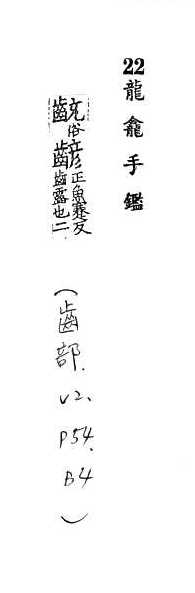 22龍龕手鑑
俗齴正魚蹇反齒露也二
(齒部. V2、P54、B4)